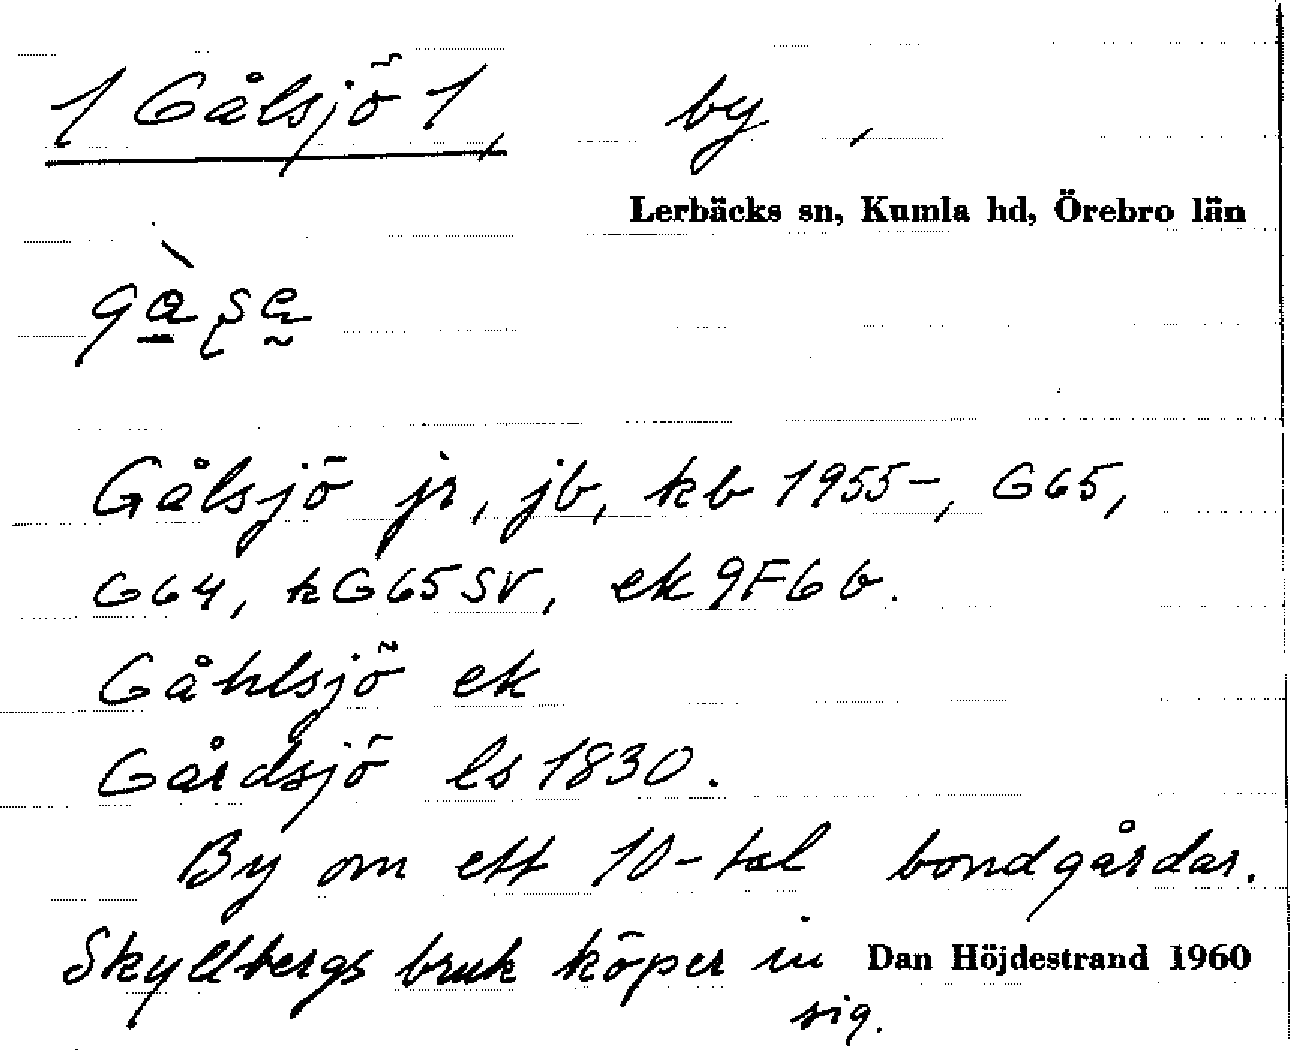 1 Gålsjö 1, by,
Lerbäcks sn, Kumla hd, Örebro län
Gålsjö jr, jb, kb 1955-, G65,
G64, kG65SV, ek 9F6b.
Gåhlsjö ek
Gårdsjö ls 1830.
By om ett 10-tal bondgårdar.
Skyllbergs bruk köper in
sig.
Dan Höjdestrand 1960